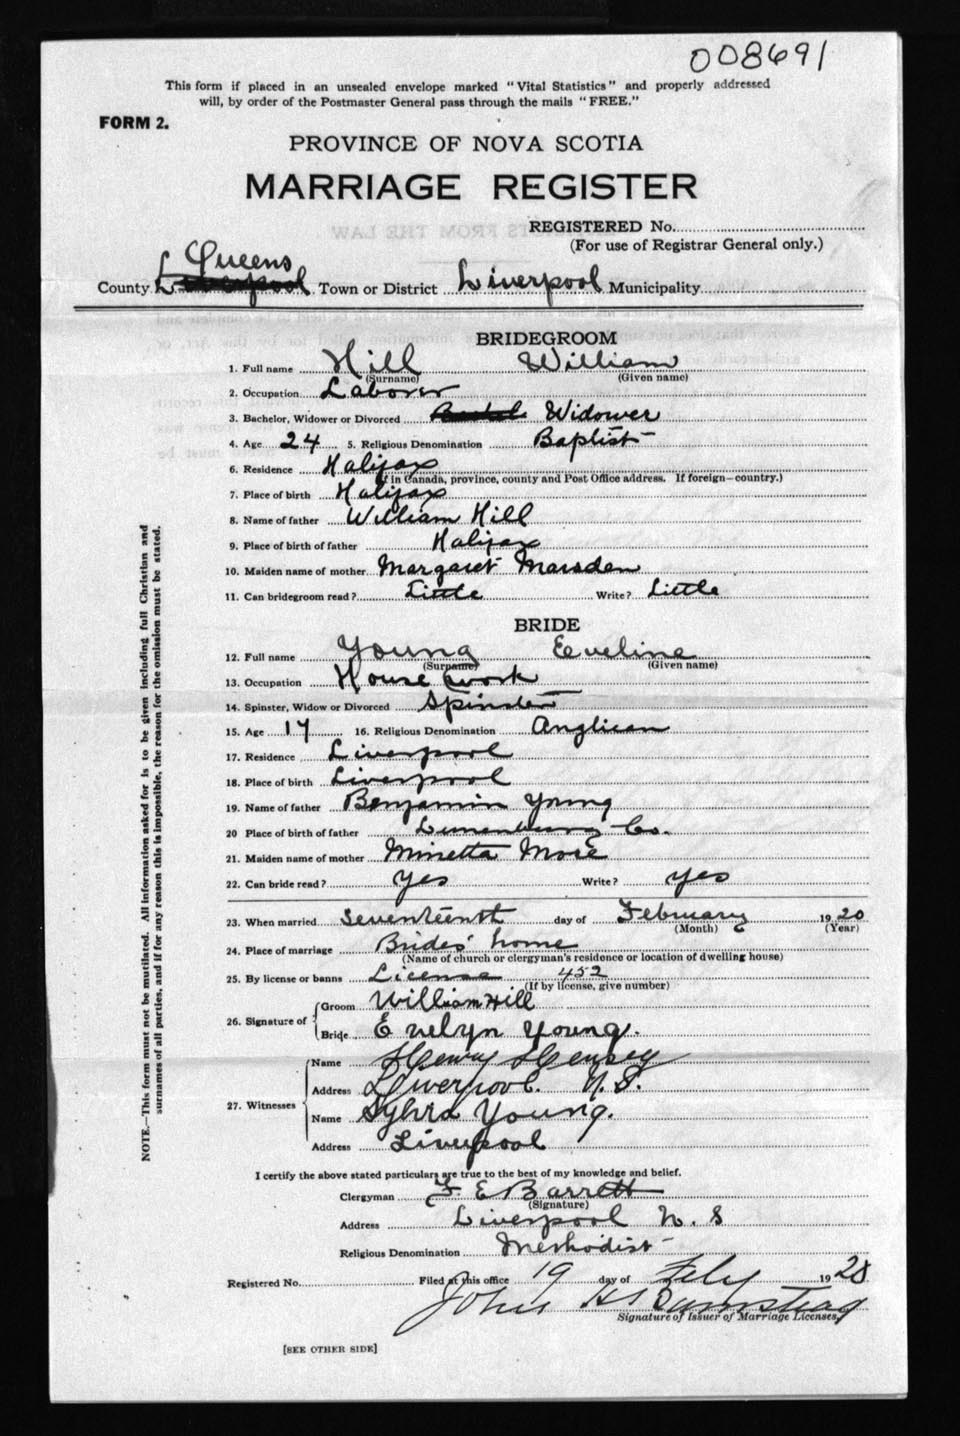 008691
This form if placed in an unsealed envelope marked "Vital Statistics" and properly addressed
will, by order of the Postmaster General pass through the mails "FREE."
FORM 2.
PROVINCE OF NOVA SCOTIA
MARRIAGE REGISTER
REGISTERED No.
(For use of Registrar General only.)
Queens
County Liverpool Town or District Liverpool Municipality
BRIDEGROOM
1. Full name Hill William
(Surname) (Given name)
2. Occupation Laborer
3. Bachelor, Widower or Divorced Widower
4. Age 24 5. Religious Denomination Baptist
6. Residence Halifax
(If in Canada, province, county and Post Office address. If foreign—country.)
7. Place of birth Halifax
8. Name of father William Hill
9. Place of birth of father Halifax
10. Maiden name of mother Margaret Marsden
11. Can bridegroom read? Little Write? Little
BRIDE
12. Full name Young Eveline
(Surname) (Given name)
13. Occupation House work
14. Spinster, Widow or Divorced Spinster
15. Age 17 16. Religious Denomination Anglican
17. Residence Liverpool
18. Place of birth Liverpool
19. Name of father Benjamin Young
20 Place of birth of father Lunenburg Co.
21. Maiden name of mother Minetta More
22. Can bride read? yes Write? yes
23. When married seventeenth day of February 1920
(Month) (Year)
24. Place of marriage Brides' home
(Name of church or clergyman's residence or location of dwelling house)
25. By license or banns License 452
(If by license, give number)
26. Signature of
Groom William Hill
Bride Evelyn Young.
27. Witnesses
Name Henry
Address Liverpool. N.S.
Name Young.
Address Liverpool
I certify the above stated particulars are true to the best of my knowledge and belief.
Clergyman F. E Barrett
(Signature)
Address Liverpool N. S
Religious Denomination Methodist
Registered No. Filed at this office 19 day of Feby 1920
John
Signature of Issuer of Marriage Licenses.
[SEE OTHER SIDE]
NOTE.—This form must not be mutilated. All information asked for is to be given including full Christian and
surnames of all parties, and if for any reason this is impossible, the reason for the omission must be stated.